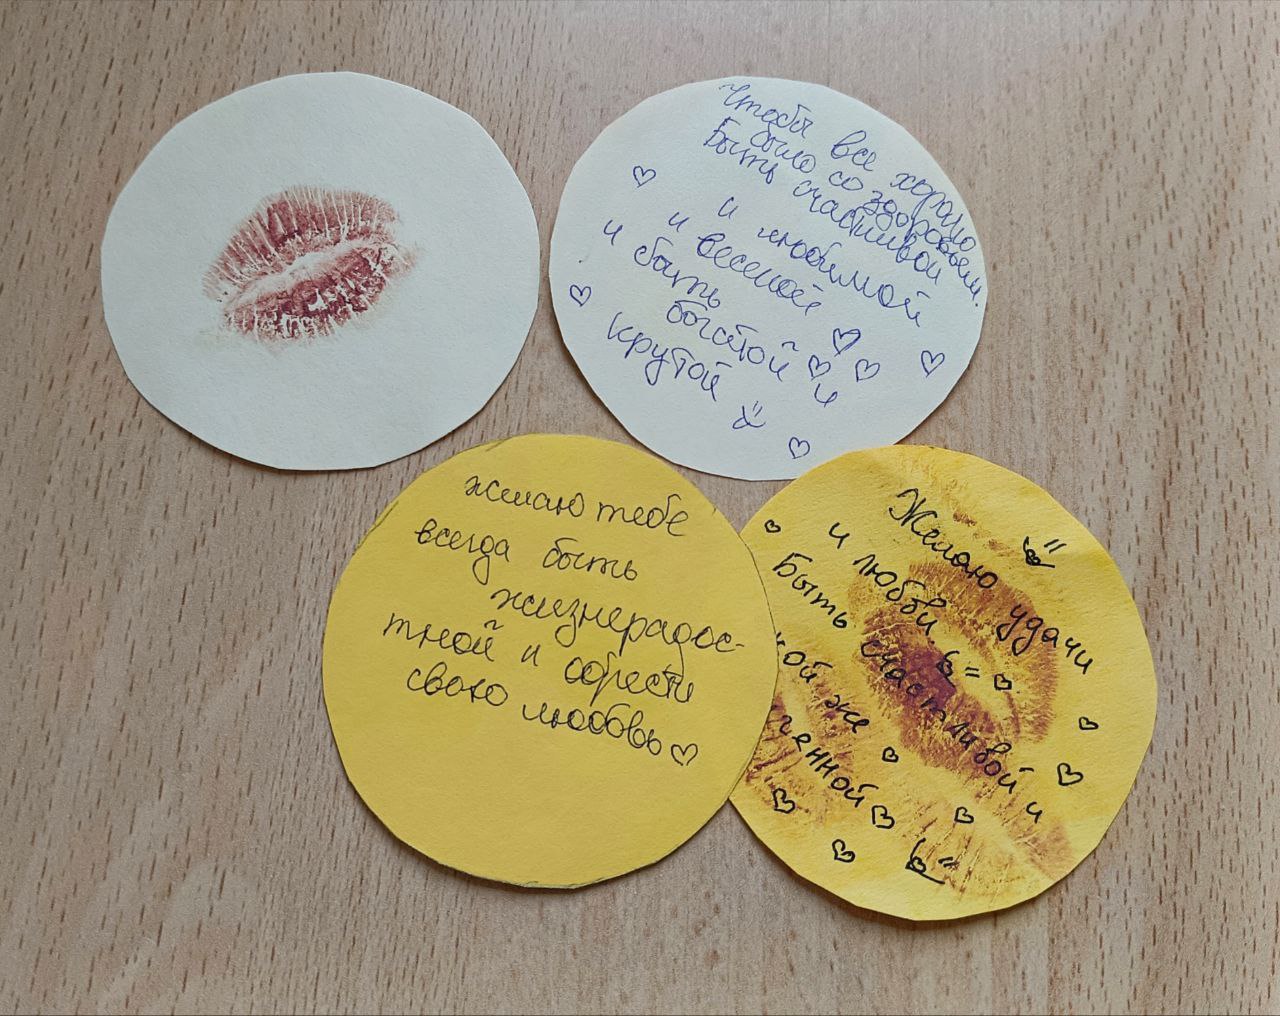 Чтобы все хорошо
было со здоровьем.
Быть счастливой
и любимой
и веселой
и быть
богатой и
крутой
желаю тебе
всегда быть
жизнерадос-
тной и обрести
свою любовь
Желаю удачи
и любви.
Быть счастливой и
же